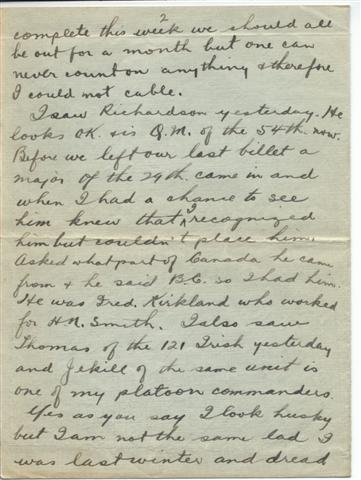 2
complete this week we should all
be out for a month but one can
never count on anything & therefore
I could not cable.
I saw Richardson yesterday. He
looks OK. & is Q.M. of the 54th now.
Before we left our last billet a
major of the 29th came in and
when I had a chance to see
him knew that I recognized
him but couldn't place him.
Asked what part of Canada he came
from & he said B.C. so I had him.
He was Fred. Kirkland who worked
for H.N. Smith. I also saw
Thomas of the 121 Irish yesterday
and Jekill of the same unit is
one of my platoon commanders.
Yes as you say I look husky
but I am not the same lad I
was last winter and dread